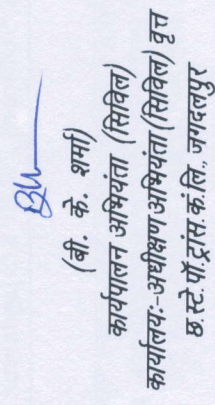 (बी. के. शर्मा)
कार्यपालन अभियंता (सिविल)
कार्यालयः-अधीक्षण अभियंता (सिविल) वृत्त
छ.स्टे.पॉ.ट्रांस.कं.लि., जगदलपुर